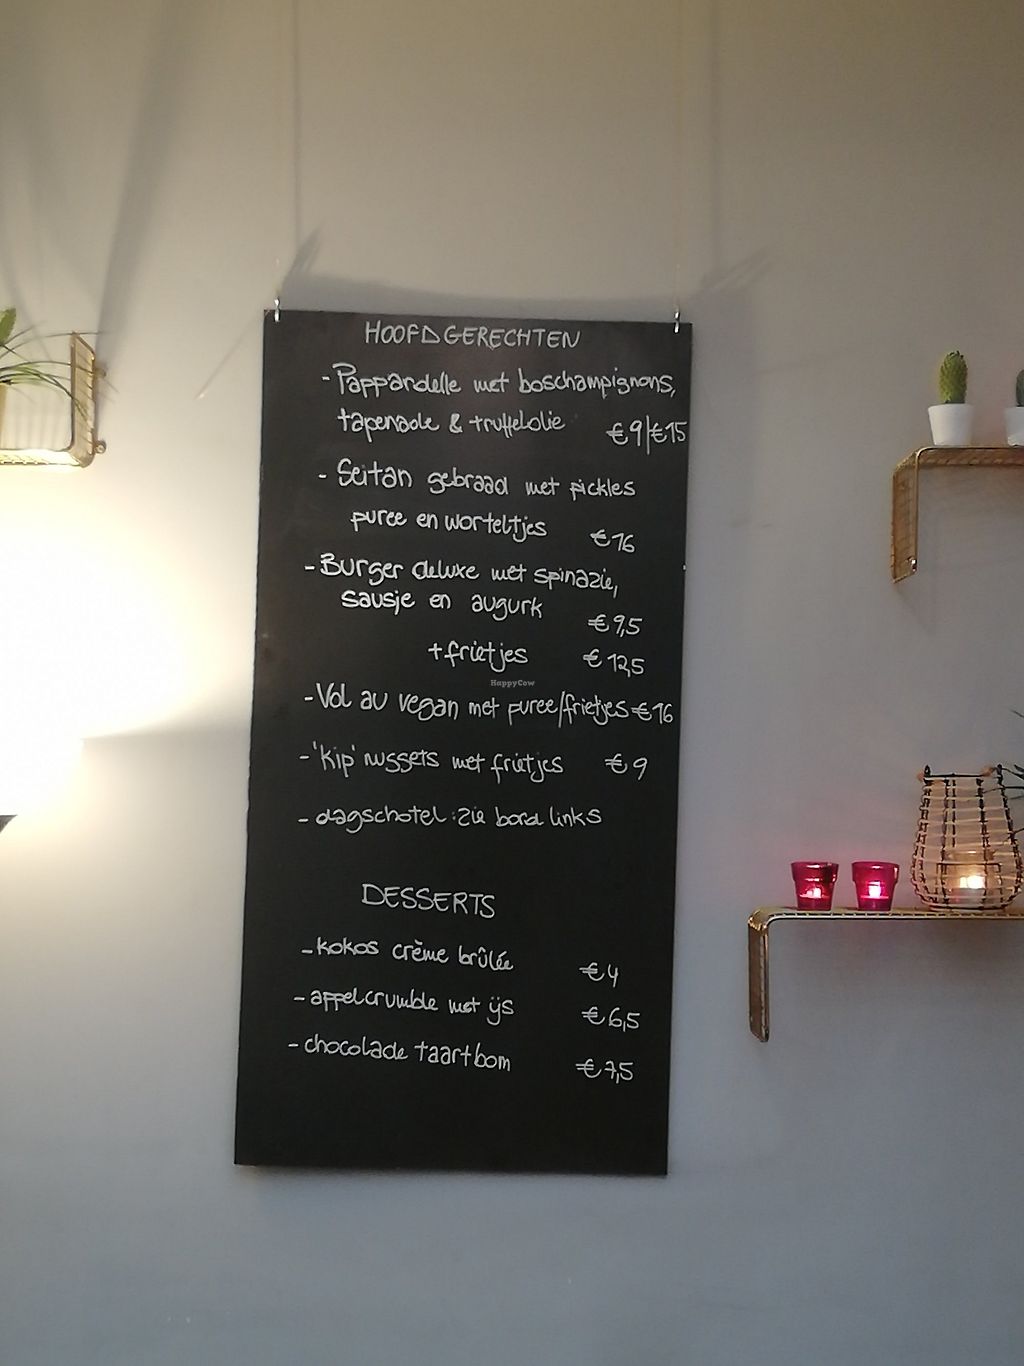 HOOFDGERECHTEN
- Pappardelle met boschampignons,
tapenade & truffelolie €9/€15
- Seitan gebraad met pickles
puree en worteltjes €16
- Burger deluxe met spinazie,
sausje en augurk €9,5
+frietjes €12,5
HappyCow
- Vol au vegan met puree/frietjes €16
- 'kip' nuggets met frietjes €9
- dagschotel: zie bord links
DESSERTS
- kokos crème brûlée €4
- appelcrumble met ijs €6,5
- chocolade taartbom €7,5